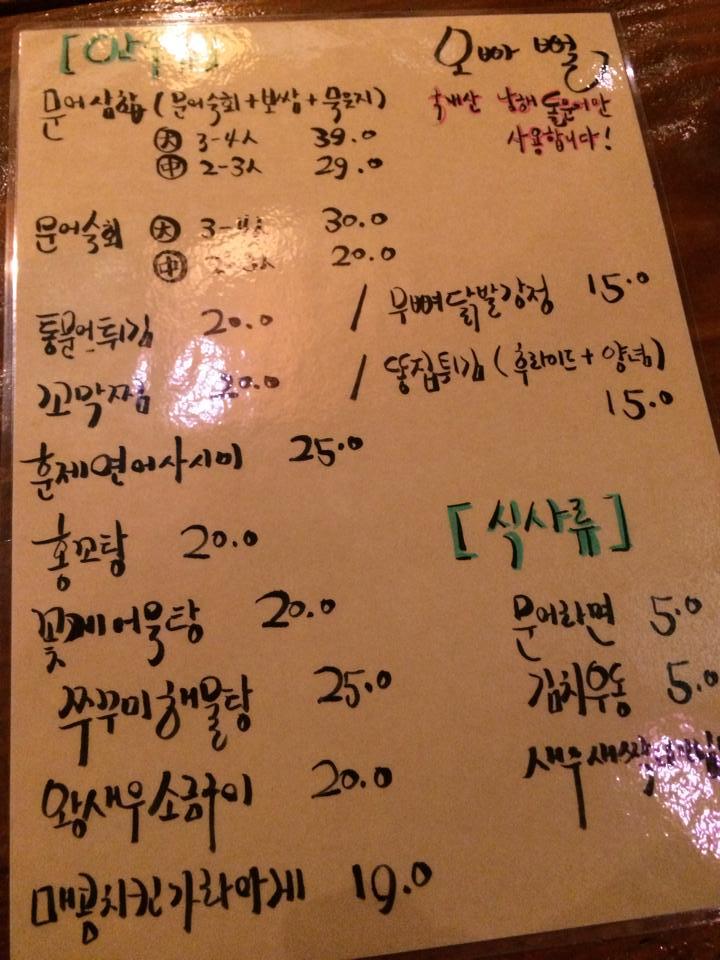 오빠 뻘
국내산 남해 돌문어만
사용합니다!
문어삼합 (문어숙회+보쌈+묵은지)
大 3-4人 39.0
中 2-3人 29.0
문어숙회 大 3-4人 30.0
中 2-3人 20.0
통문어튀김 20.0 / 무뼈닭발강정 15.0
꼬막찜 20.0 / 똥집튀김 (후라이드+양념)
15.0
훈제연어사시미 25.0
홍꼬탕 20.0
꽃게어묵탕 20.0
쭈꾸미해물탕 25.0
왕새우소금구이 20.0
매콤치킨가라아게 19.0
[식사류]
문어라면 5.0
김치우동 5.0